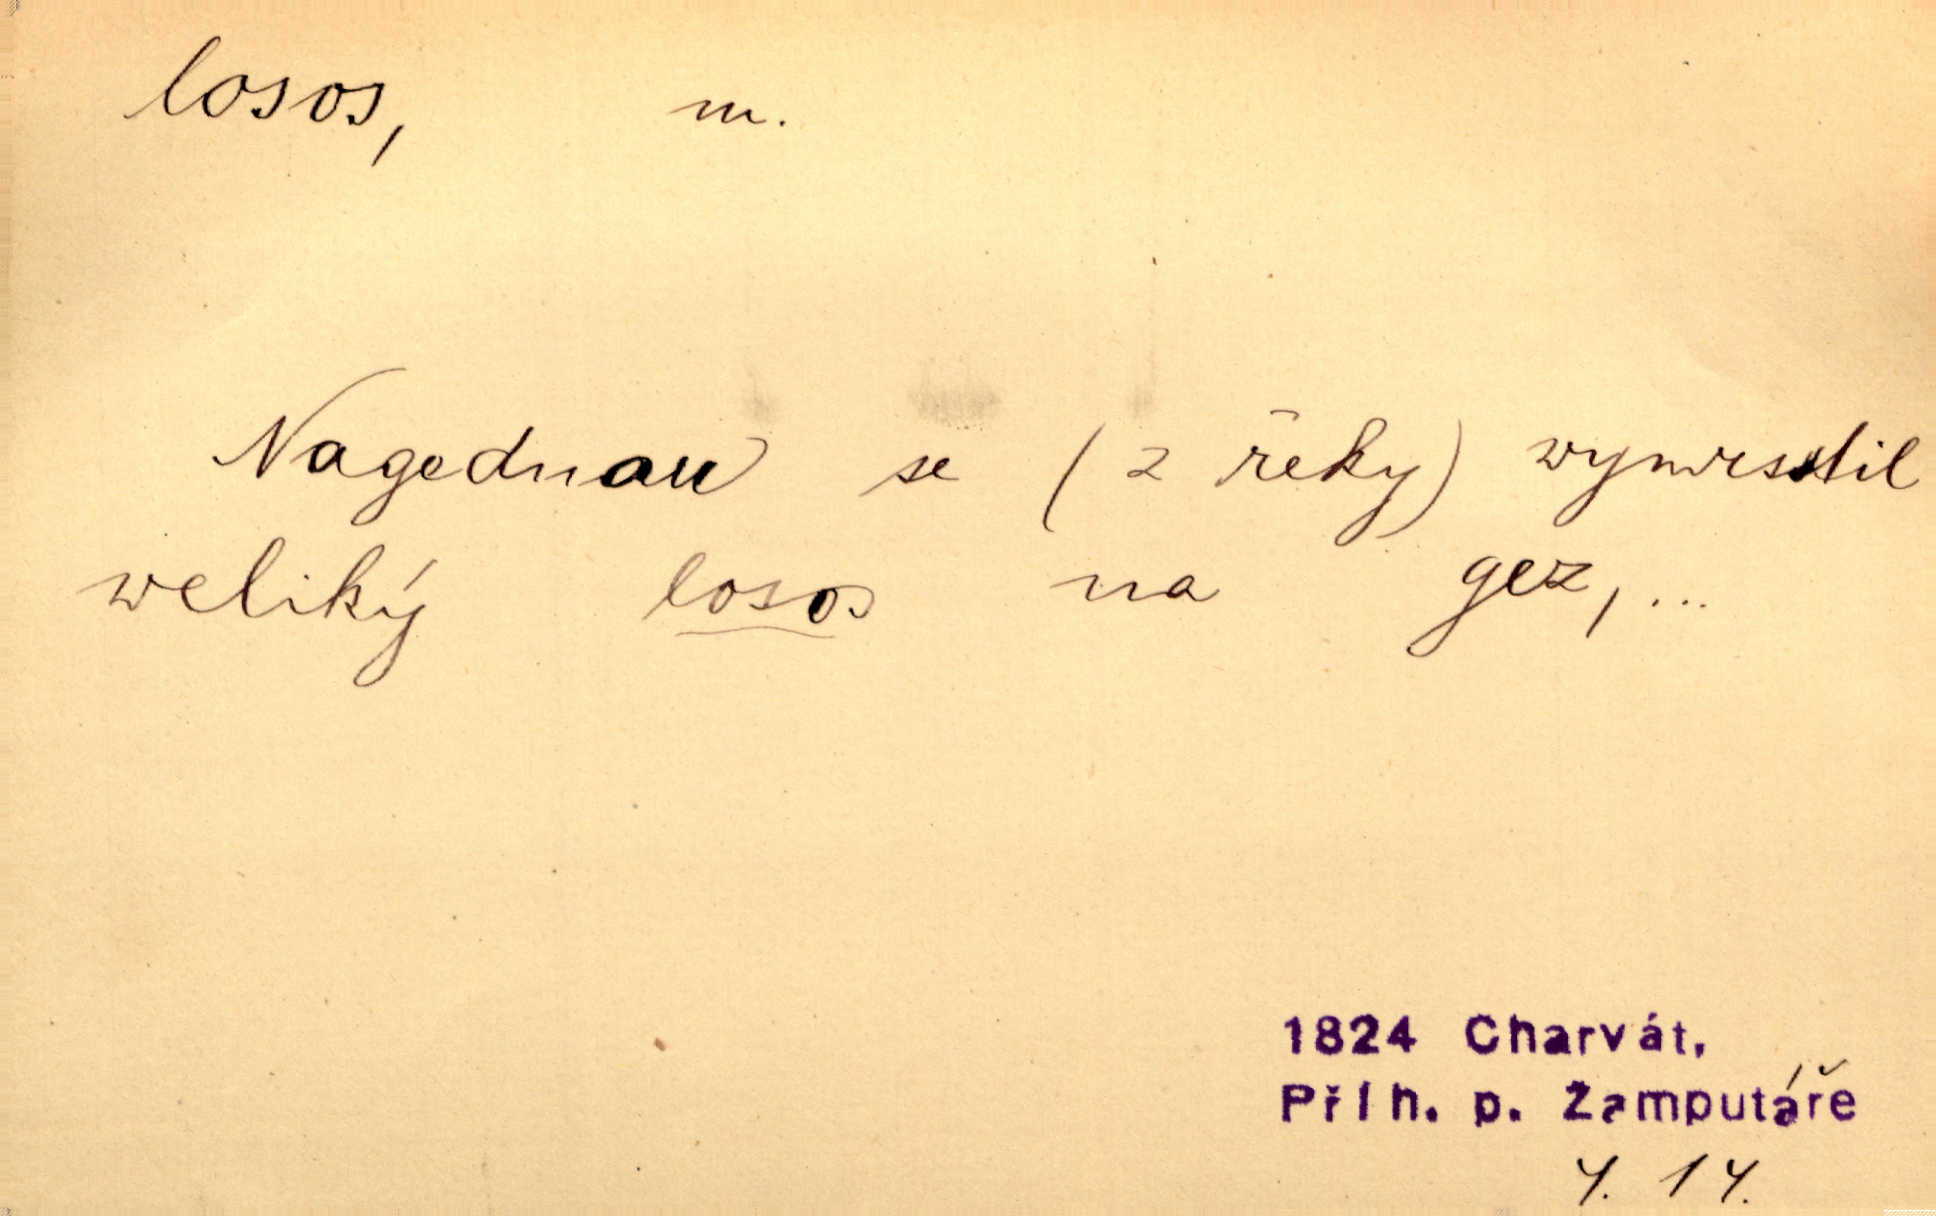 losos, m.
Nagednau se (z řeky) wymrsstil
weliký losos na gez,...
1824 Charvát,
Příh. p. Zamputáře
4. 14.